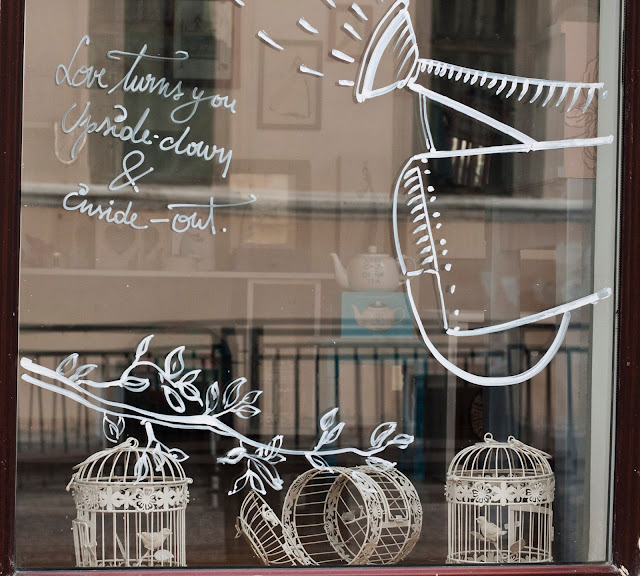 Love turns you
Upside-down
&
inside-out.